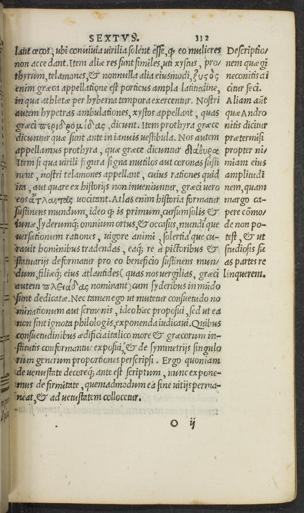 SEXTVS. 112
lant œcos, ubi conuiuia uirilia solent esse, quo eo mulieres
non accedant. Item aliæ res sunt similes, ut xystus, pro-
thyrum, telamones, & nonnulla alia eiusmodi, ξυσὸς
enim græca appellatione est porticus ampla latitudine,
in qua athletæ per hyberna tempora exercentur. Nostri
autem hypetras ambulationes, xystos appellant, quas
græci περιδρομίδας, dicunt. Item prothyra græce
dicuntur quæ sunt ante in ianuis uestibula. Nos autem
appellamus prothyra, quæ græce dicuntur διάθυρα.
Item si qua uirili figura signa mutulos aut coronas susti
nent, nostri telamones appellant, cuius rationes quid
ita, aut quare ex historijs non inueniuntur, græci uero
eos ἄτλαντας uocitant. Atlas enim historia formatur
sustinens mundum, ideo quod is primum, cursum solis &
lunæ, syderumque omnium ortus, & occasus, mundi que
uersationum rationes, uigore animi, solertiaque cu-
rauit hominibus tradendas, eaque re à pictoribus &
statuarijs deformatur pro eo beneficio sustinens mun-
dum, filiæque eius atlantides ( quas nos uergilias, græci
autem πλειάδας nominant ) cum syderibus in mūdo
sunt dedicatæ. Nec tamen ego ut mutetur consuetudo no
minationum aut sermonis, ideo hæc proposui, sed ut ea
non sint ignota philologis, exponenda iudicaui. Quibus
consuetudinibus ædificia italico more & græcorum in-
stitutis conformantur exposui, & de symmetrijs singulo
rum generum proportiones perscripsi. Ergo quoniam
de uenustate decoreque ante est scriptum, nunc expone-
mus de firmitate, quemadmodum ea sine uitijs perma-
neāt, & ad uetustatem collocetur.
O ij
Descriptio
nem quæ gī
neconitis ai
citur seci.
Aliam aūt
quæ Andro
nitis dicitur
prætermisi
propter ni-
miam eius
amplitudi
nem, quam
margo ca-
pere cōmo/
de non po-
test, & ut
studiosis sæ
as partes re
linquerem.